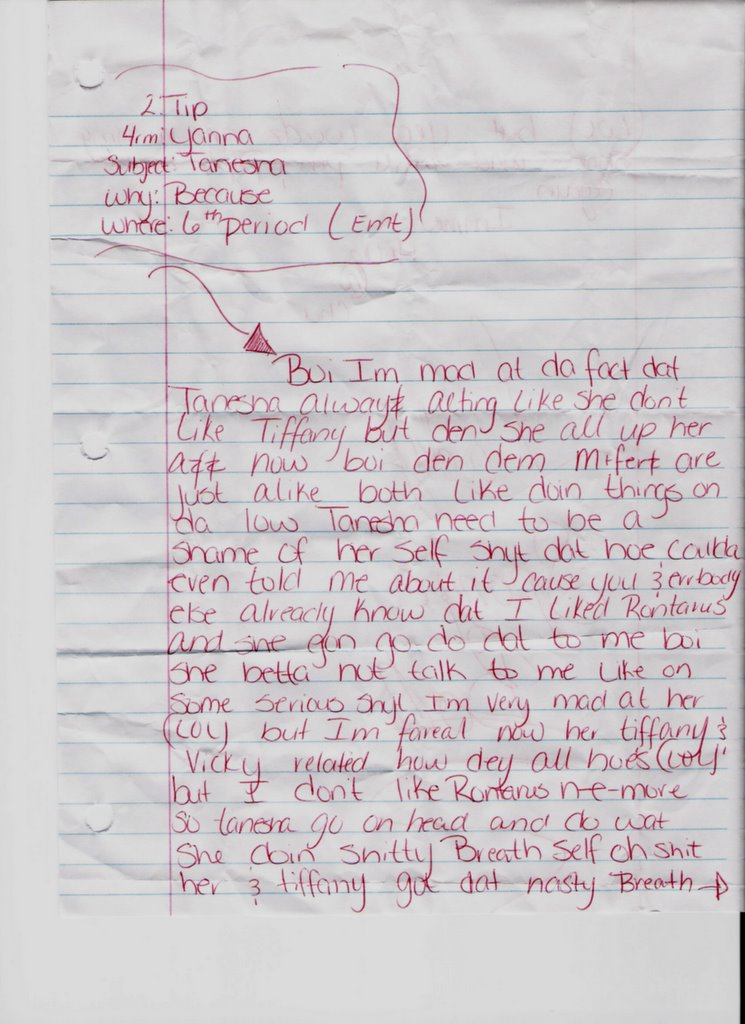 2 Tip
4rm: Yanna
Subject: Tanesha
why: Because
where: 6th period (Emt)
Boi Im mad at da fact dat
Tanesha always acting like she don't
like Tiffany but den she all up her
a$$ now boi den dem M+fer$ are
just alike both like doin things on
da low Tanesha need to be a
shame of her self shyt dat hoe coulda
even told me about it cause you & errbody
else already know dat I liked Rontarus
and she gon go do dat to me boi
she betta not talk to me like on
some serious shyt Im very mad at her
(LOL) but I'm foreal now her tiffany &
Vicky related how dey all hoes (LOL)
but I don't like Rontarus n-e-more
so tanesha go on head and do wat
she doin shitty Breath self oh shit
her & tiffany got dat nasty Breath →